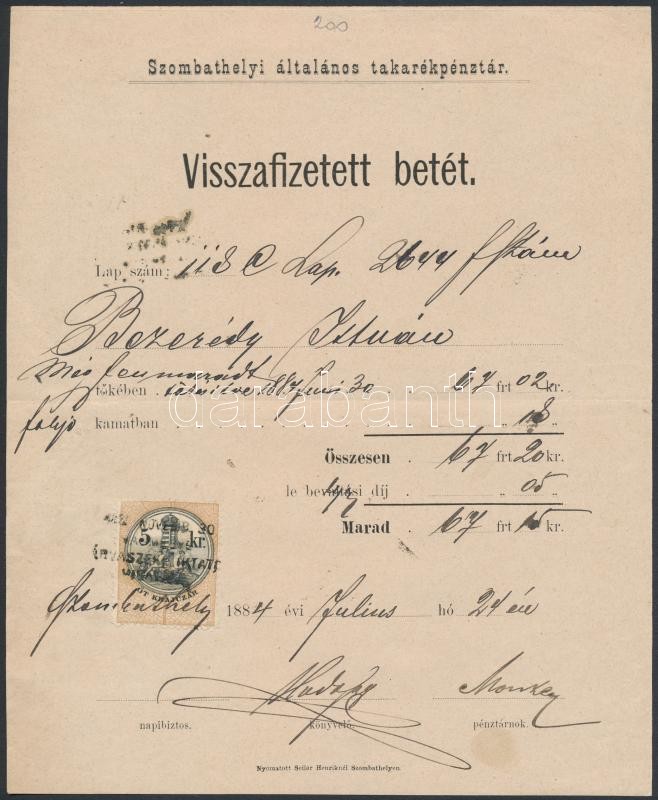 200
Szombathelyi általános takarékpénztár.
Visszafizetett betét.
Lap szám: 118 C Lap. 2644 f szám
Bezerédy István
Még fennmaradt
tőkében 30 67 frt 02 kr.
folyó kamatban 18 "
Összesen 67 frt 20 kr.
le bevallási díj " 05 "
Marad 67 frt 15 kr.
5 kr.
ÖT KRAJCZÁR
Szombathely 1884 évi Julius hó 24 én
napibiztos. könyvelő. pénztárnok.
Nyomatott Seiler Henriknél Szombathelyen.
darabanth